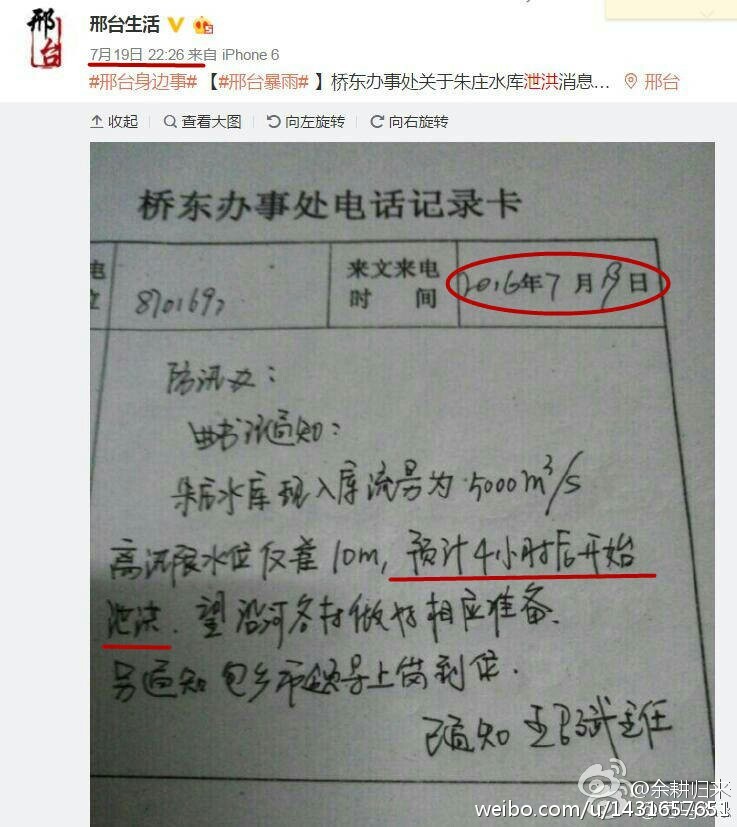 邢台
邢台生活
7月19日 22:26 来自 iPhone 6
#邢台身边事# 【#邢台暴雨# 】桥东办事处关于朱庄水库泄洪消息… 邢台
收起 查看大图 向左旋转 向右旋转
桥东办事处电话记录卡
电 来文来电 2016年7月19日
位 8701697 时 间
防汛办：
曲书记通知：
朱庄水库现入库流量为5000m³/s
离汛限水位仅差10m，预计4小时后开始
泄洪．望沿河各村做好相应准备．
另通知包乡市领导上岗到位．
已通知 王 斌主任
@余耕归来
weibo.com/u/1431657651